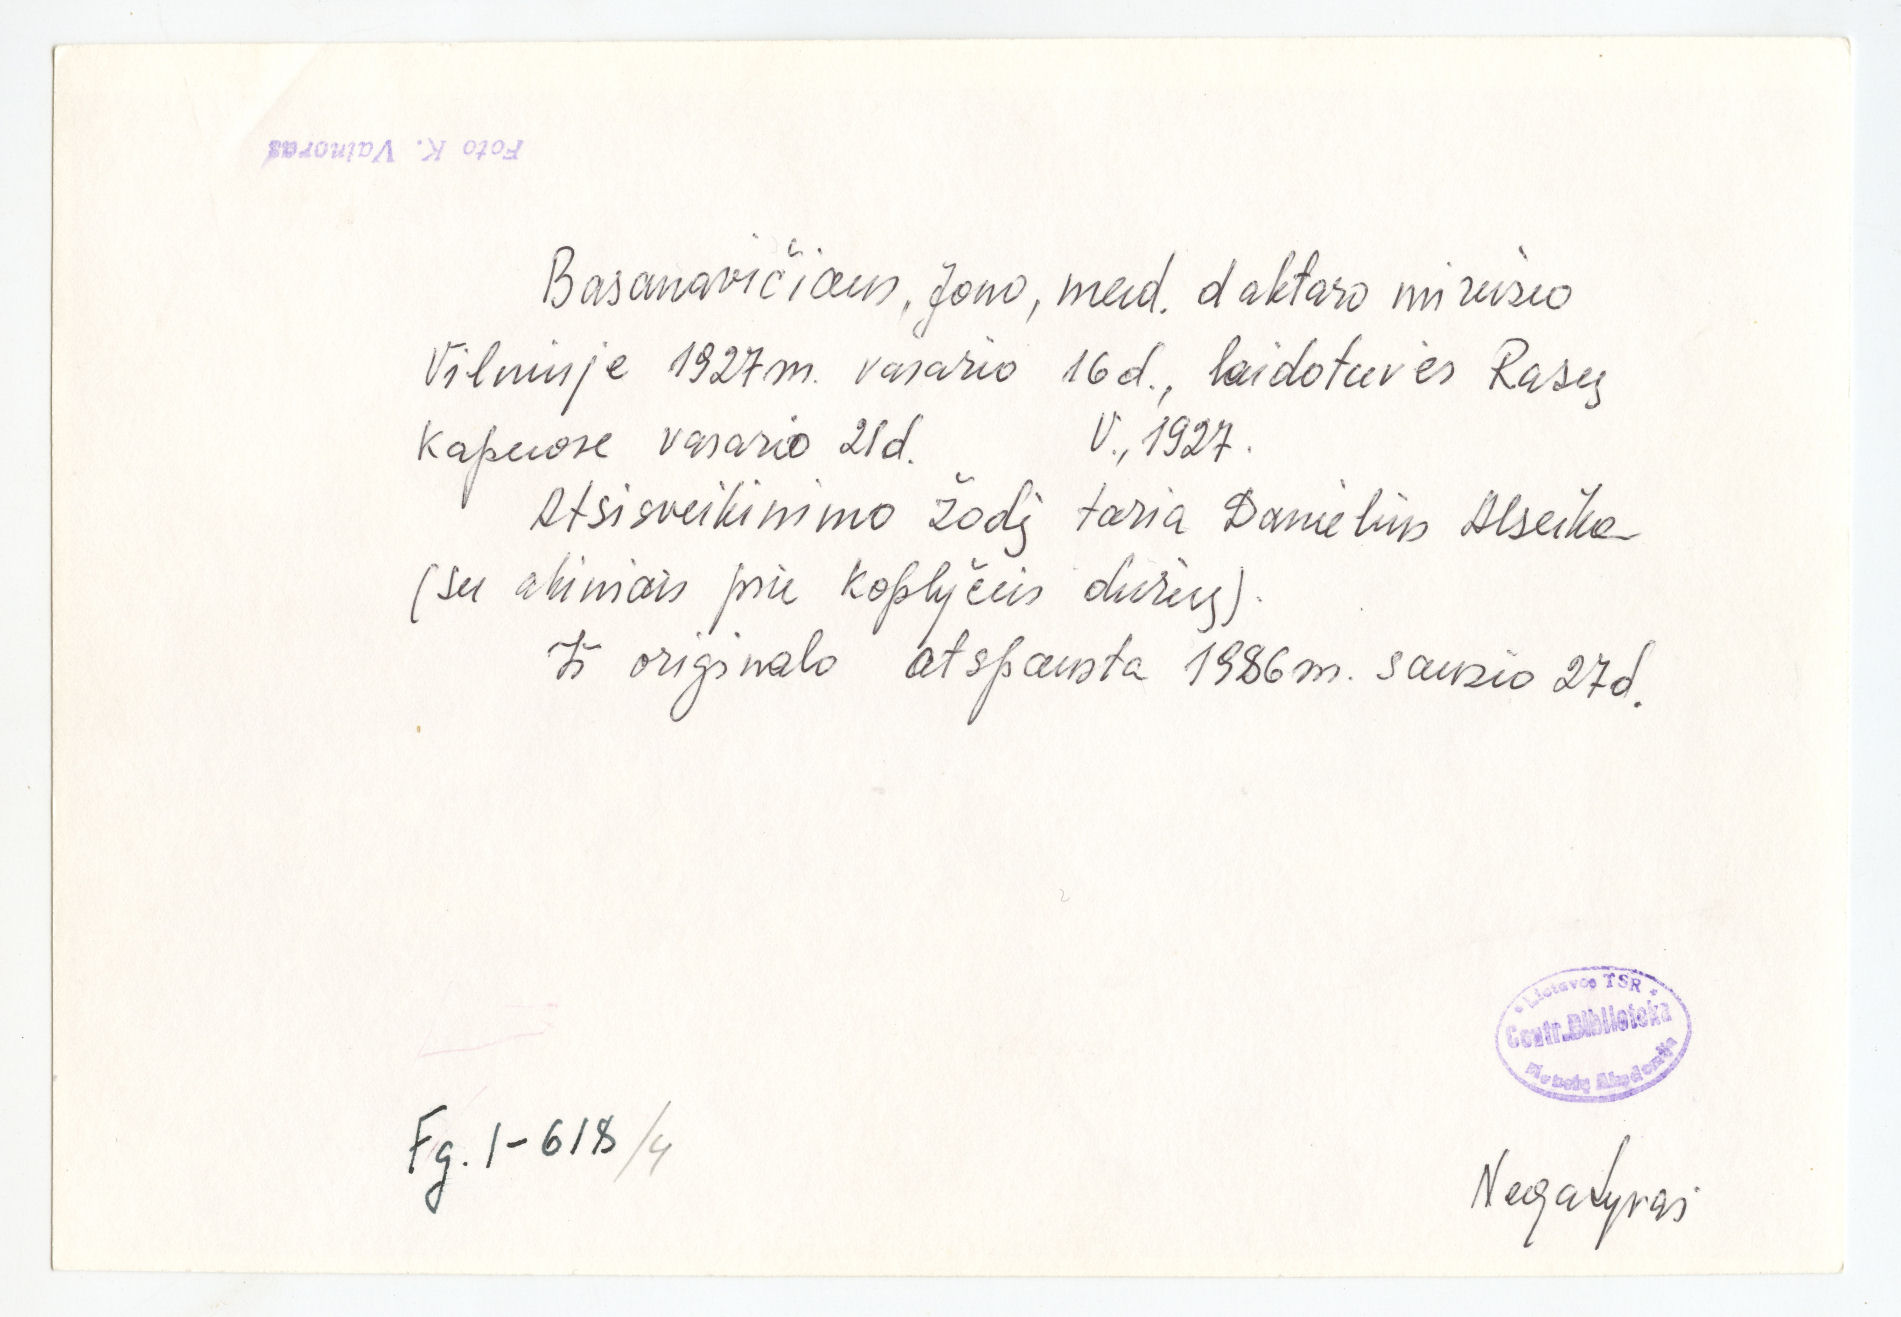 Foto K. Vainoras
Basanavičiaus, Jono, med. daktaro mirusio
Vilniuje 1927 m. vasario 16 d., laidotuvės Rasų
kapuose vasario 21 d. V., 1927.
Atsisveikinimo žodį taria Danielius Alseika
(su akiniais prie koplyčios durų).
Iš originalo atspausta 1986 m. sausio 27 d.
Lietuvos TSR
Centr. Biblioteka
Mokslų Akademija
Fg. 1-618/4
Negatyvas